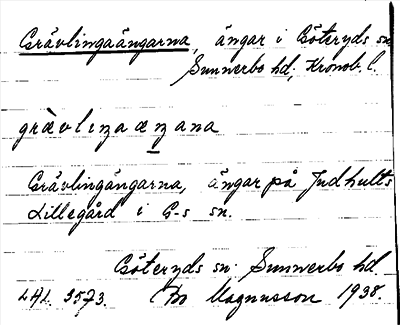 Grävlingaängarna, ängar i Göteryds sn
Sunnerbo hd; Kronob. l.
grävlıŋaæŋana
Grävlingängarna, ängar på Judhults
Lillegård i G-s sn.
Göteryds sn. Sunnerbo hd
LAL. 3573. Bo Magnusson 1938.